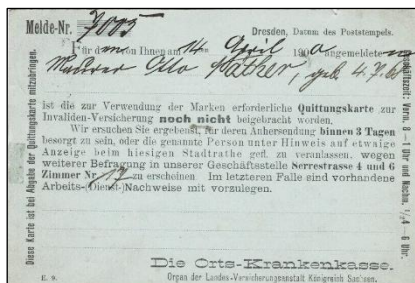 Melde-Nr. 7005
Dresden, Datum des Poststempels.
Für den von Ihnen am 14ten April 1900 angemeldeten
Maurer Otto Näther, geb. 4.7.
ist die zur Verwendung der Marken erforderliche Quittungskarte zur
Invaliden-Versicherung noch nicht beigebracht worden.
Wir ersuchen Sie ergebenst, für deren Anhersendung binnen 3 Tagen
besorgt zu sein, oder die genannte Person unter Hinweis auf etwaige
Anzeige beim hiesigen Stadtrathe gefl. zu veranlassen, wegen
weiterer Befragung in unserer Geschäftsstelle Serrestrasse 4 und 6
Zimmer Nr. 17 zu erscheinen. Im letzteren Falle sind vorhandene
Arbeits-(Dienst-)Nachweise mit vorzulegen.
Die Orts-Krankenkasse.
E. 9.
Organ der Landes-Versicherungsanstalt Königreich Sachsen.
Diese Karte ist bei Abgabe der Quittungskarte mitzubringen.
Geschäftszeit: Vorm. 8—1 Uhr und Nachm. 1/24—6 Uhr.